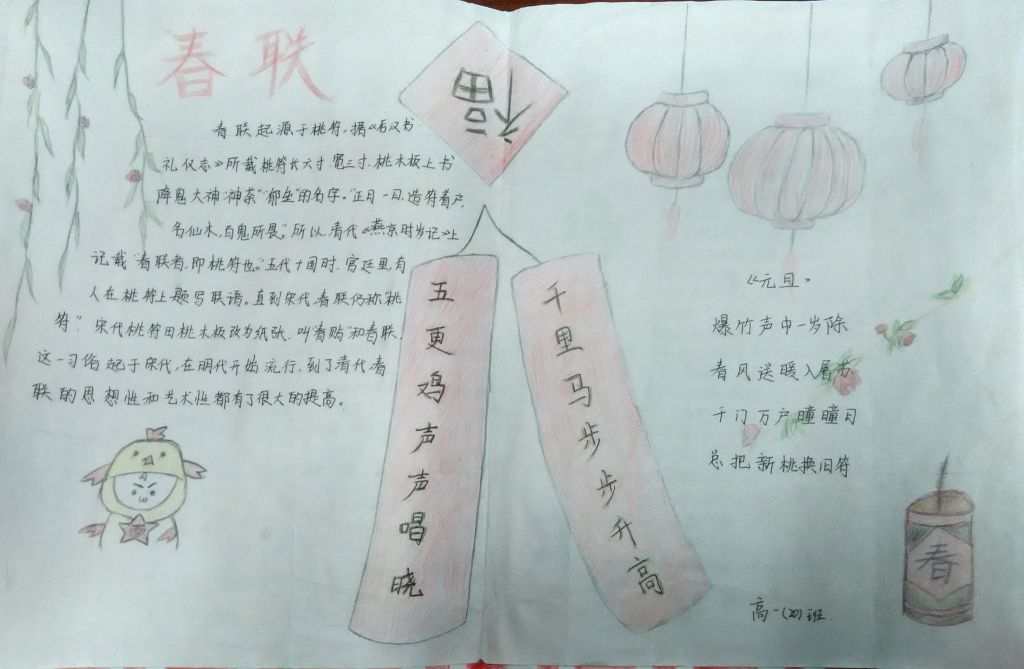 春联
福
春联起源于桃符,据《后汉书·
礼仪志》所载桃符长六寸宽三寸,桃木板上书
降鬼大神"神荼""郁垒"的名字。"正月一日,造符着户,
名仙木,百鬼所畏。"所以,清代《燕京时岁记》上
记载"春联者,即桃符也。"五代十国时,宫廷里,有
人在桃符上题写联语。直到宋代,春联仍称"桃
符"。宋代桃符由桃木板改为纸张,叫"春贴"和春联。
这一习俗起于宋代,在明代开始流行,到了清代春
联的思想性和艺术性都有了很大的提高。
五更鸡声声唱晓
千里马步步升高
《元旦》
爆竹声中一岁除
春风送暖入屠苏
千门万户曈曈日
总把新桃换旧符
春
高一(20)班